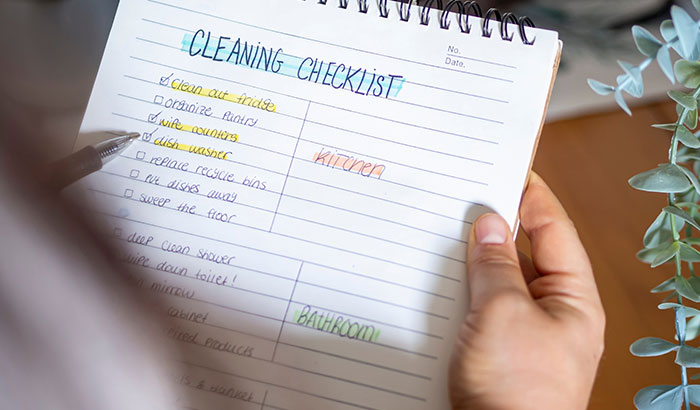 No.
Date.
CLEANING CHECKLIST
clean out fridge
organize pantry
wipe counters
dish washer
replace recycle bins
put dishes away
sweep the floor
kitchen
deep clean shower
wipe down toilet!
mirrow
cabinet
products
BATHROOM